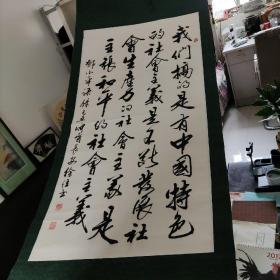 我們搞的是有中國特色
的社會主義是不斷發展社
會生產力的社會主義是
主張和平的社會主義
鄧小平語錄